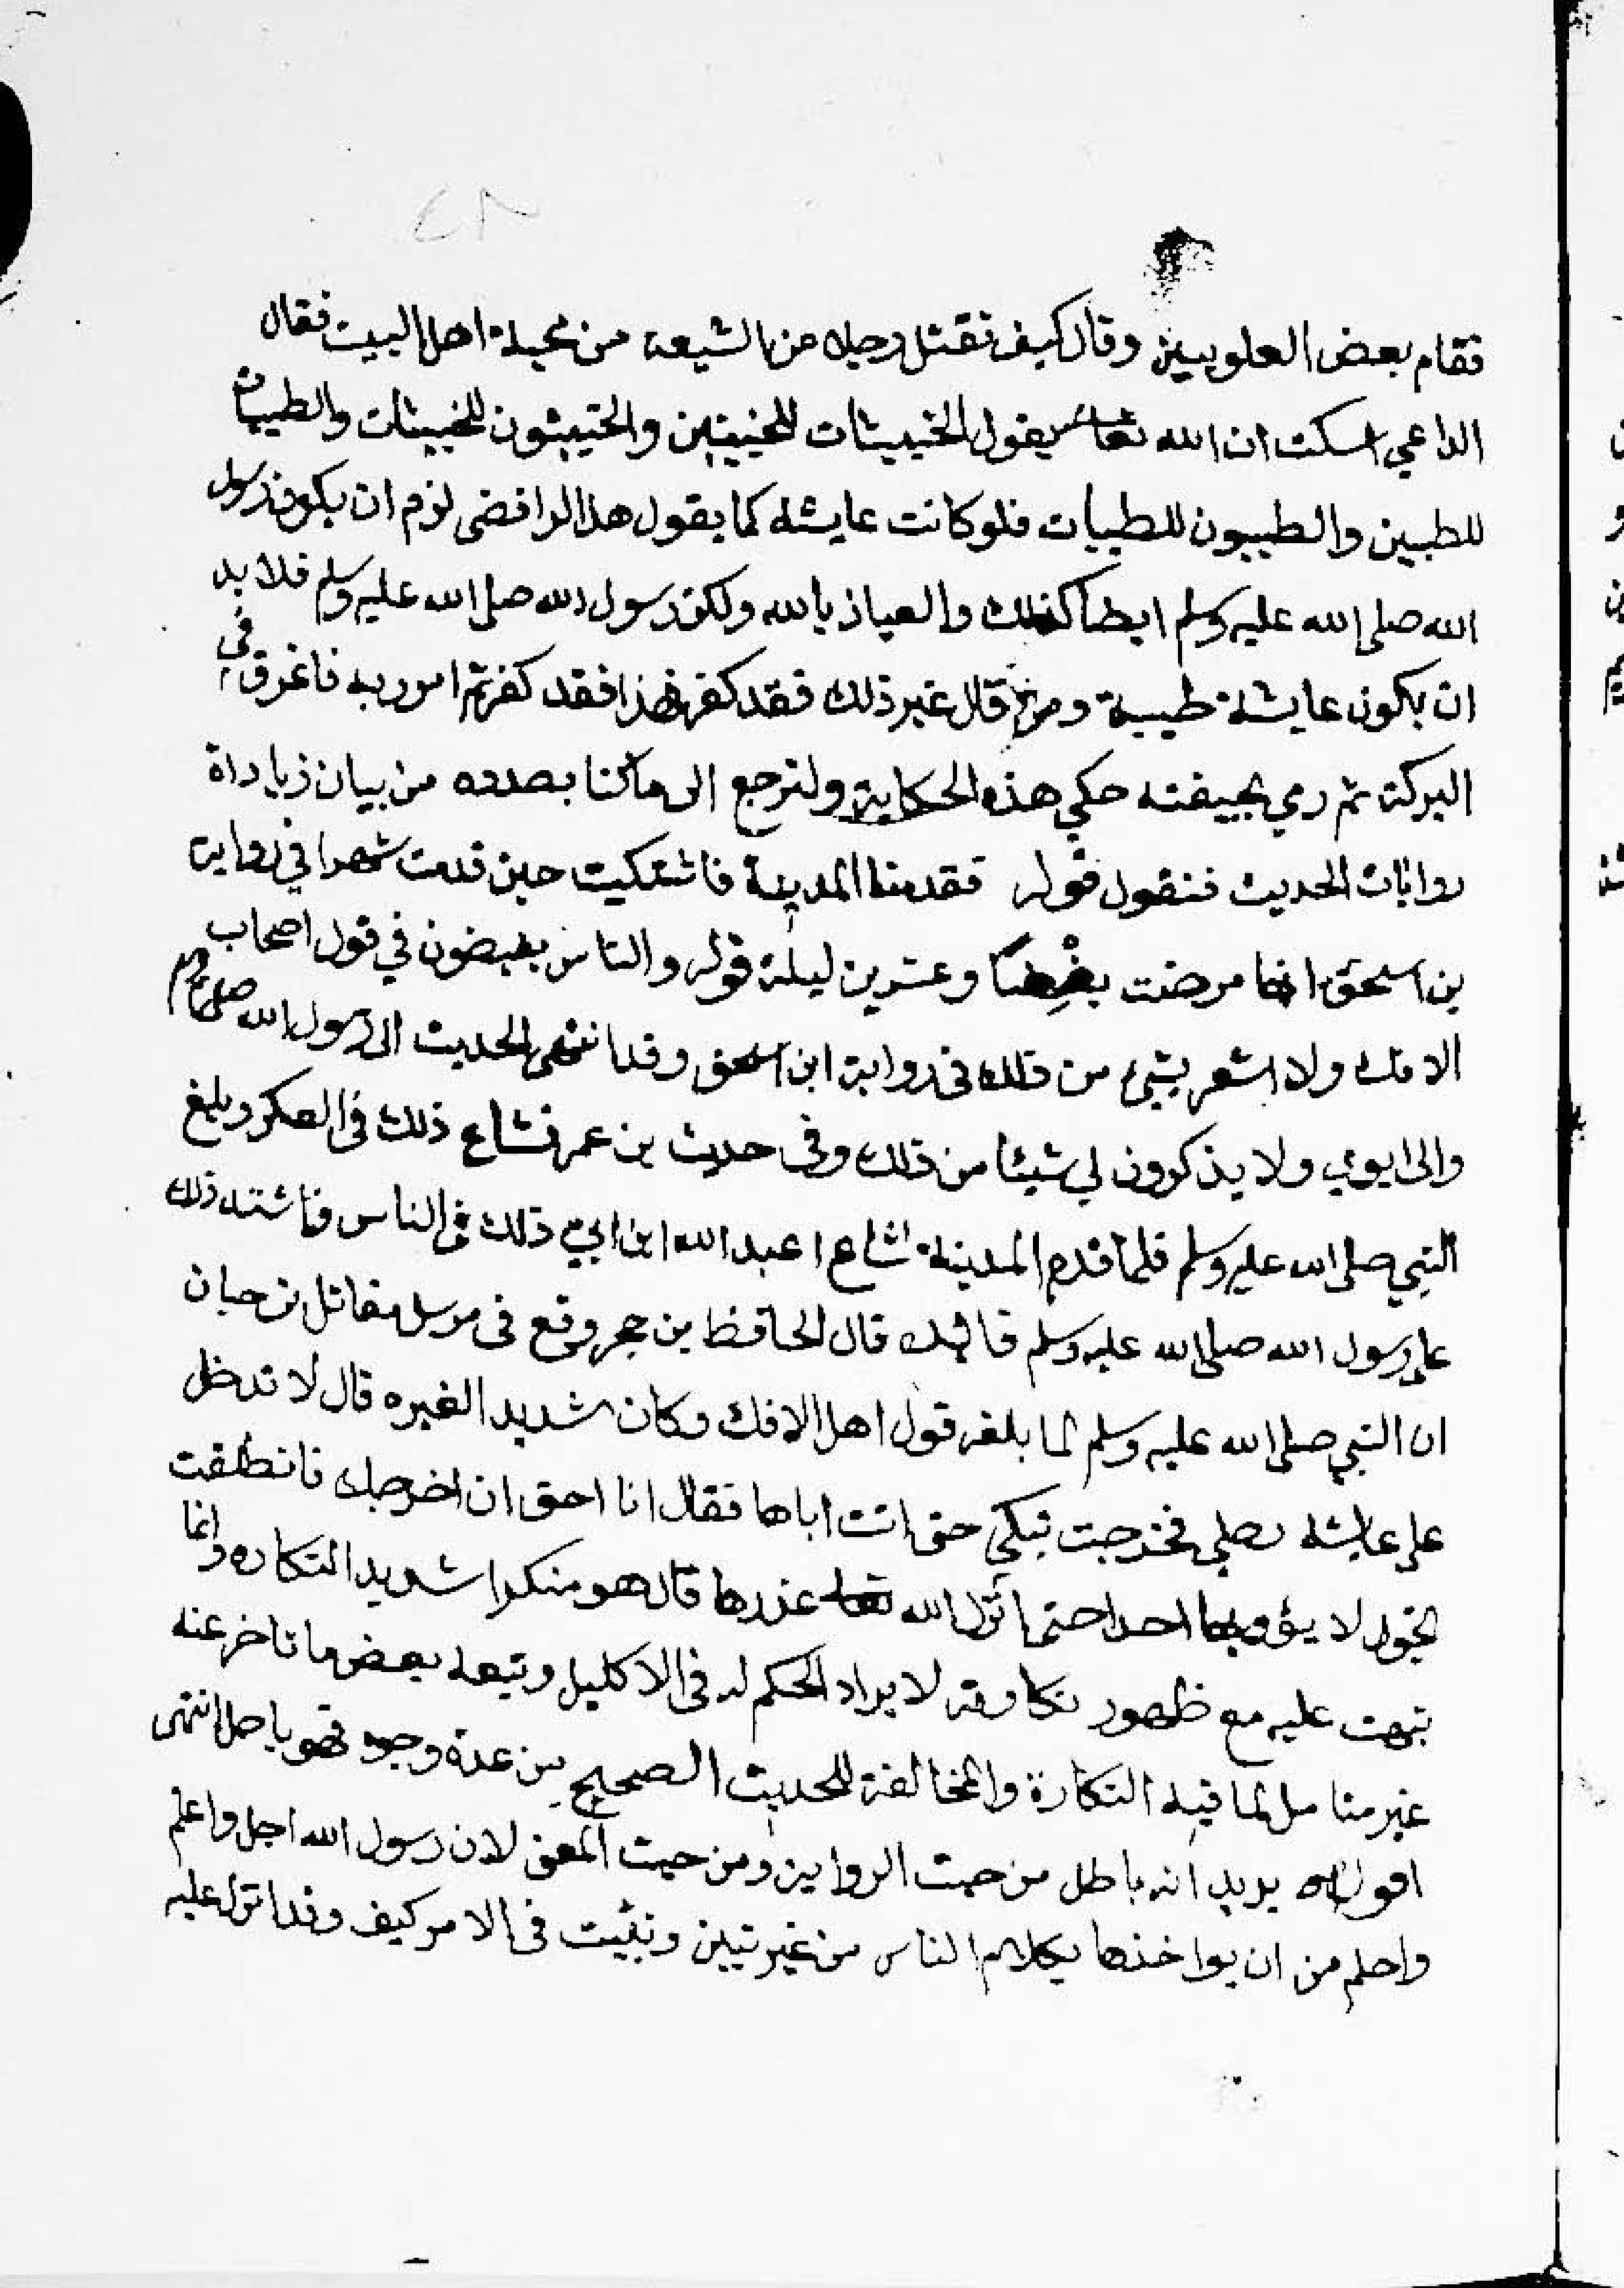 ٢٨
فقام بعض العلويين وقال كيف نقتل رجلا من الشيعة من محبة اهل البيت فقال
الداعي اسكت ان الله تعالى يقول الخبيثات للخبيثين والخبيثون للخبيثات والطيبات
للطيبين والطيبون للطيبات فلو كانت عايشة كما يقول هذا الرافضى لزم ان يكون رسول
الله صلى الله عليه وسلم ايضا كذلك والعياذ بالله ولكن رسول الله صلى الله عليه وسلم فلا بد
ان يكون عايشة طيبة ومن قال غير ذلك فقد كفر فهذا فقد كفر ثم امور به فاغرق في
البركة ثم رمي بجيفته حكي هذه الحكاية ولنرجع الى ما كنا بصدده من بيان زياداة
روايات الحديث فنقول قوله فقدمنا المدينة فاشتكيت حين قدمت شهرا في رواية
بن اسحق انها مرضت بضعا وعشرين ليلة قوله والناس يفيضون في قول اصحاب
الافك ولا اشعر بشئ من ذلك فى رواية ابن اسحق وقد انتهى الحديث الى رسول الله صلى
والى ابوي ولا يذكرون لي شيئا من ذلك وفى حديث بن عمر فشاع ذلك فى العسكر وبلغ
النبي صلى الله عليه وسلم فلما قدم المدينة اشاع عبد الله ابن ابي ذلك فى الناس فاشتد ذلك
على رسول الله صلى الله عليه وسلم قال الحافظ بن حجر وقع فى مرسل مقاتل بن حبان
ان النبي صلى الله عليه وسلم لما بلغه قول اهل الافك وكان شديد الغيره قال لا تدخل
على عايشة رحلي فخرجت تبكي حتى اتت اباها فقال انا احق ان اخرجك فانطلقت
تجول لا يؤويها احدا حتى انزل الله تعالى عذرها قال هو منكرا شديد النكاره وانما
نبهت عليه مع ظهور نكارته لايراد الحكم له فى الاكليل وتبعه بعض ما تاخر عنه
غير متامل لما فيه النكارة والمخالفة للحديث الصحيح من عدة وجوه فهو باطل انتهى
اقول يريد انه باطل من حيث الرواية ومن حيث المعنى لان رسول الله اجل واعلم
واحلم من ان يواخذها بكلام الناس من غير تبين وتثبت فى الامر كيف وقد انزل عليه